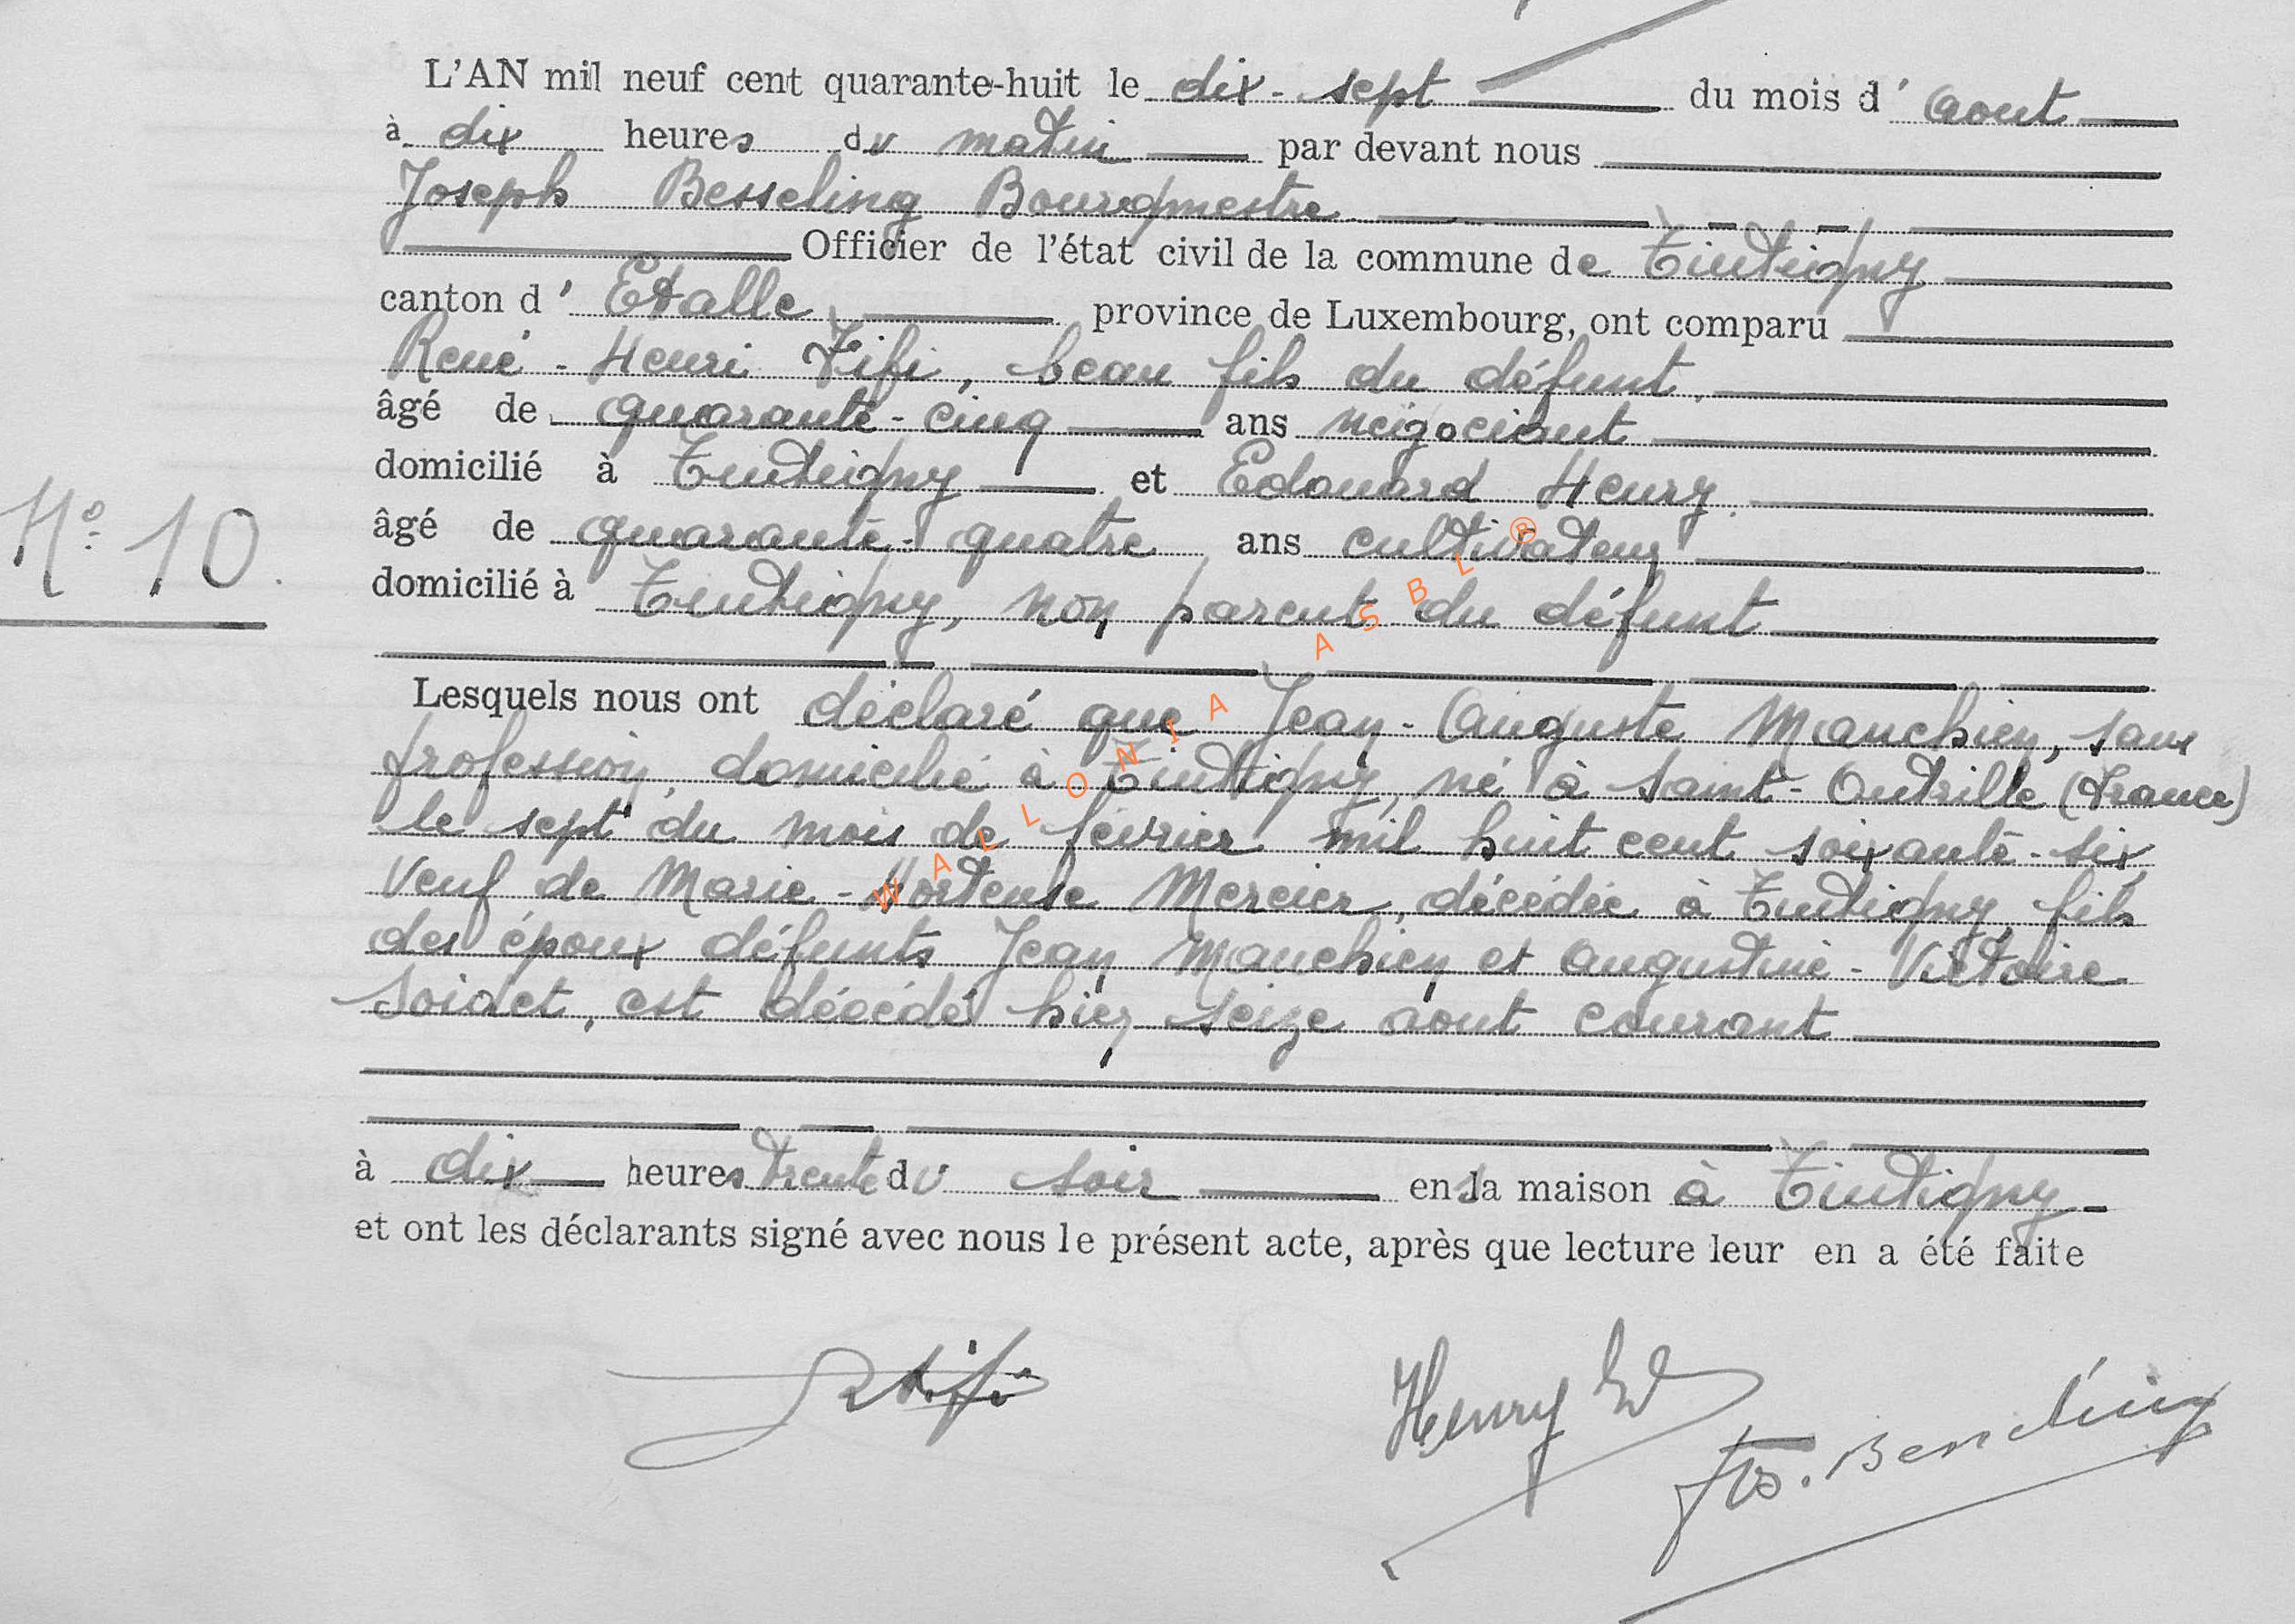 L'AN mil neuf cent quarante-huit le dix-sept du mois d'aout
à dix heures du matin par devant nous
Joseph Besseling Bourgmestre
Officier de l'état civil de la commune de Tintigny
canton d'Etalle province de Luxembourg, ont comparu
René-Henri Tifi, beau fils du défunt,
âgé de quarante-cinq ans négociant
domicilié à Tintigny et Edouard Henry
N° 10.
âgé de quarante-quatre ans cultivateur
domicilié à Tintigny, non parent du défunt
Lesquels nous ont déclaré que Jean-Auguste Manchien, sans
profession, domicilié à Tintigny, né à Saint-Outrille (France)
le sept du mois de février mil huit cent soixante-six,
Veuf de Marie-Hortense Mercier, décédée à Tintigny, fils
des époux défunts Jean Manchien et Augustine-Victoire
Soidet, est décédé hier seize aout courant
à dix heures trente du soir en sa maison à Tintigny
et ont les déclarants signé avec nous le présent acte, après que lecture leur en a été faite
R Tifi
Henry Ed
Jos. Besseling
WALLONIA ASBL ®